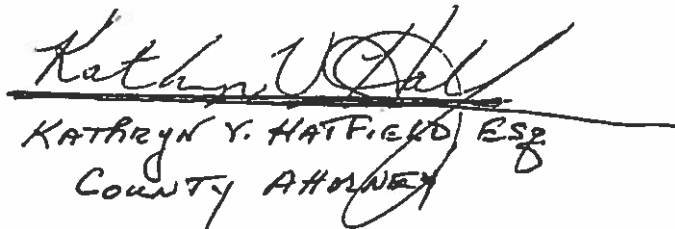 Kathryn V Hatf
KATHRYN V. HATFIELD ESQ
COUNTY ATTORNEY